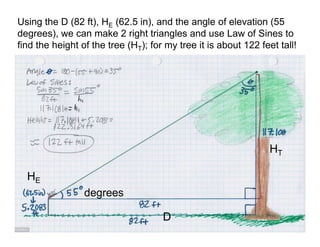 Using the D (82 ft), HE (62.5 in), and the angle of elevation (55
degrees), we can make 2 right triangles and use Law of Sines to
find the height of the tree (HT); for my tree it is about 122 feet tall!
Angle θ = 180-(55+90)=35°
Law of Sines:
Sin35° = Sin55°
82ft h₁
117.108ft = h₁
Height = 117.108ft + 5.2083=
122.3164 ft
≈ 122 ft tall
θ
35°
117.108
HT
HE
(62.5in)
55°
degrees
5.2083
ft
82ft
82ft
D